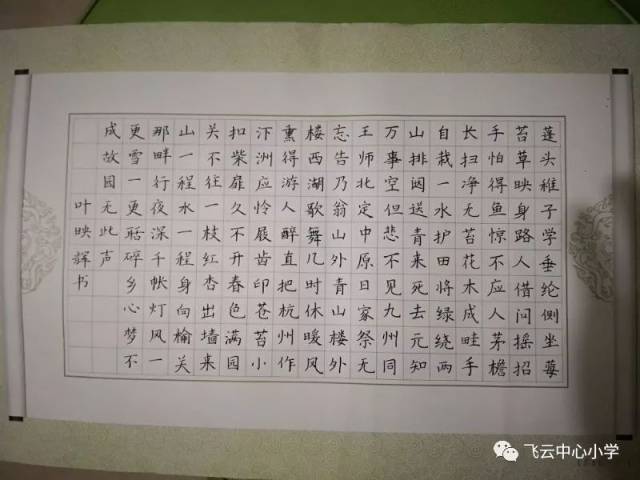 蓬头稚子学垂纶侧坐莓
苔草映身路人借问摇招
手怕得鱼惊不应人茅檐
长扫净无苔花木成畦手
自栽一水护田将绿绕两
山排闼送青来死去元知
万事空但悲不见九州同
王师北定中原日家祭无
忘告乃翁山外青山楼外
楼西湖歌舞几时休暖风
熏得游人醉直把杭州作
汴洲应怜屐齿印苍苔小
扣柴扉久不开春色满园
关不往一枝红杏出墙来
山一程水一程身向榆关
那畔行夜深千帐灯风一
更雪一更聒碎乡心梦不
成故园无此声
叶映辉书
飞云中心小学